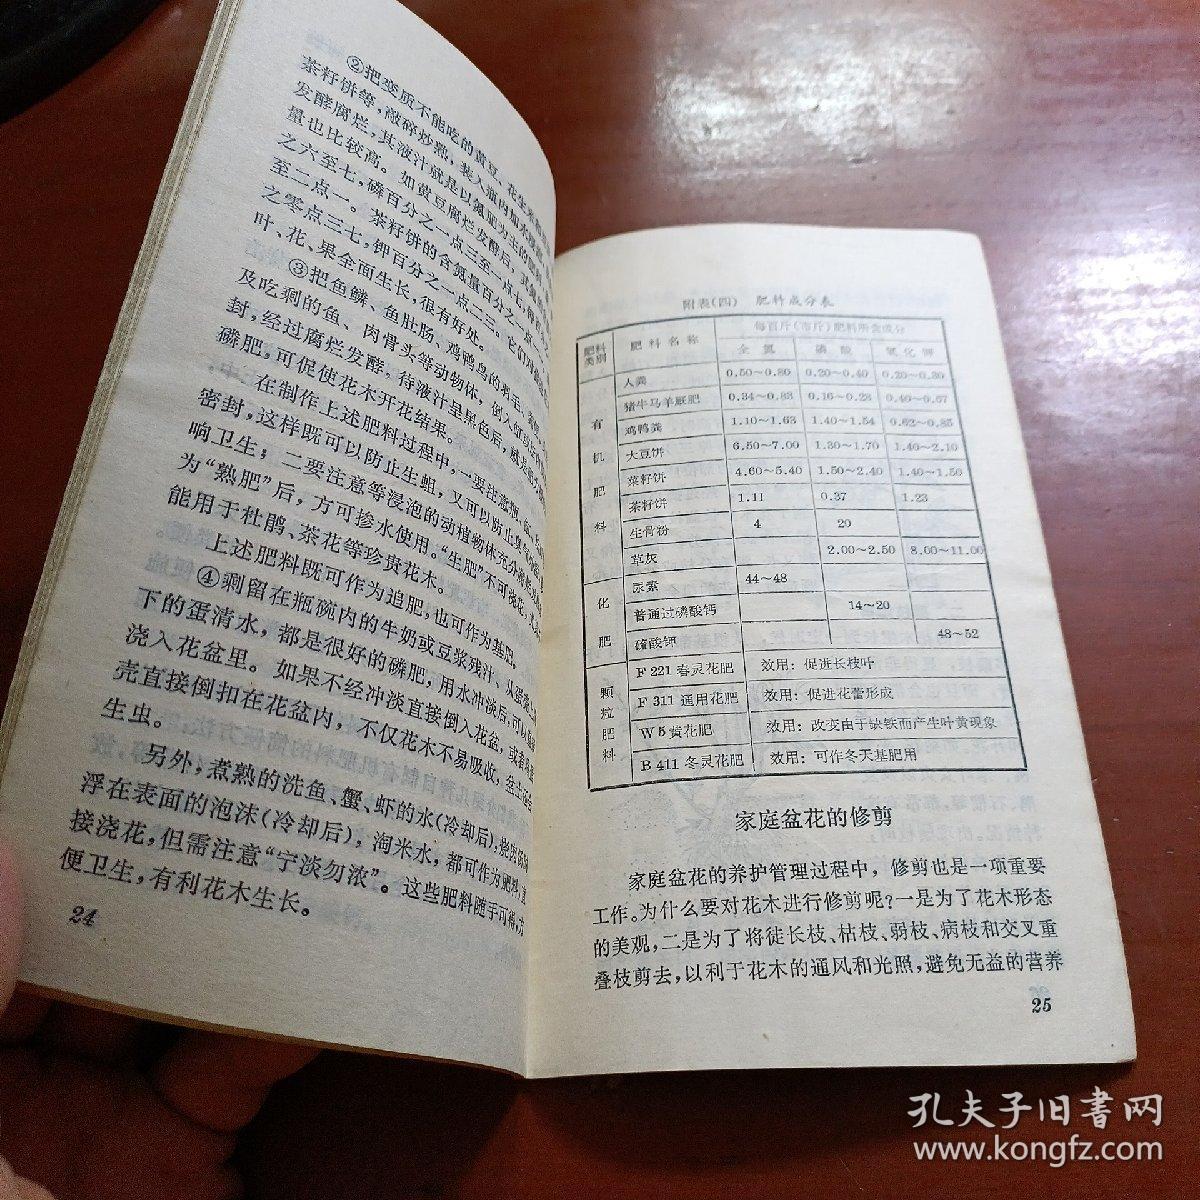 ②把变质不能吃的黄豆、花生
茶籽饼等，敲碎炒熟，装入
发酵腐烂，其液汁就是以氮肥为主的
量也比较高。如黄豆腐烂发酵后，
之六至七，磷百分之一点三至一点七，
至二点一。茶籽饼的含氮量百分之一点一
之零点三七，钾百分之一点二三，它们对
叶、花、果全面生长，很有好处。
③把鱼鳞、鱼肚肠、鸡鸭鸟的
及吃剩的鱼、肉骨头等动物体，倒入
封，经过腐烂发酵，待液汁呈黑色后，就是
磷肥，可促使花木开花结果。
在制作上述肥料过程中，一要注意
密封，这样既可以防止生蛆，又可以防止臭气
响卫生；二要注意等浸泡的动植物体充分
为“熟肥”后，方可掺水使用。“生肥”不可浇花，
能用于杜鹃、茶花等珍贵花木。
上述肥料既可作为追肥，也可作为基肥。
④剩留在瓶碗内的牛奶或豆浆残汁、从蛋壳
下的蛋清水，都是很好的磷肥，用水冲淡后，可以
浇入花盆里。如果不经冲淡直接倒入花盆，或者
壳直接倒扣在花盆内，不仅花木不易吸收，盆土
生虫。
另外，煮熟的洗鱼、蟹、虾的水（冷却后），烧
浮在表面的泡沫（冷却后），淘米水，都可作为肥料，直
接浇花，但需注意“宁淡勿浓”。这些肥料随手可得，方
便卫生，有利花木生长。
24
附表（四） 肥料成分表
肥料类别 肥料名称 每百斤（市斤）肥料所含成分
全氮 磷酸 氧化钾
有机肥料
人粪 0.50～0.80 0.20～0.40 0.20～0.30
猪牛马羊厩肥 0.34～0.83 0.16～0.23 0.40～0.67
鸡鸭粪 1.10～1.63 1.40～1.54 0.62～0.85
大豆饼 6.50～7.00 1.30～1.70 1.40～2.10
菜籽饼 4.60～5.40 1.50～2.40 1.40～1.50
茶籽饼 1.11 0.37 1.23
生骨粉 4 20
草灰 2.00～2.50 8.00～11.00
化肥
尿素 44～48
普通过磷酸钙 14～20
硫酸钾 48～52
颗粒肥料
F 221 春灵花肥 效用：促进长枝叶
F 311 通用花肥 效用：促进花蕾形成
W5 黄花肥 效用：改变由于缺铁而产生叶黄现象
B 411 冬灵花肥 效用：可作冬天基肥用
家庭盆花的修剪
家庭盆花的养护管理过程中，修剪也是一项重要
工作。为什么要对花木进行修剪呢？一是为了花木形态
的美观，二是为了将徒长枝、枯枝、弱枝、病枝和交叉重
叠枝剪去，以利于花木的通风和光照，避免无益的营养
25
孔夫子旧书网
www.kongfz.com